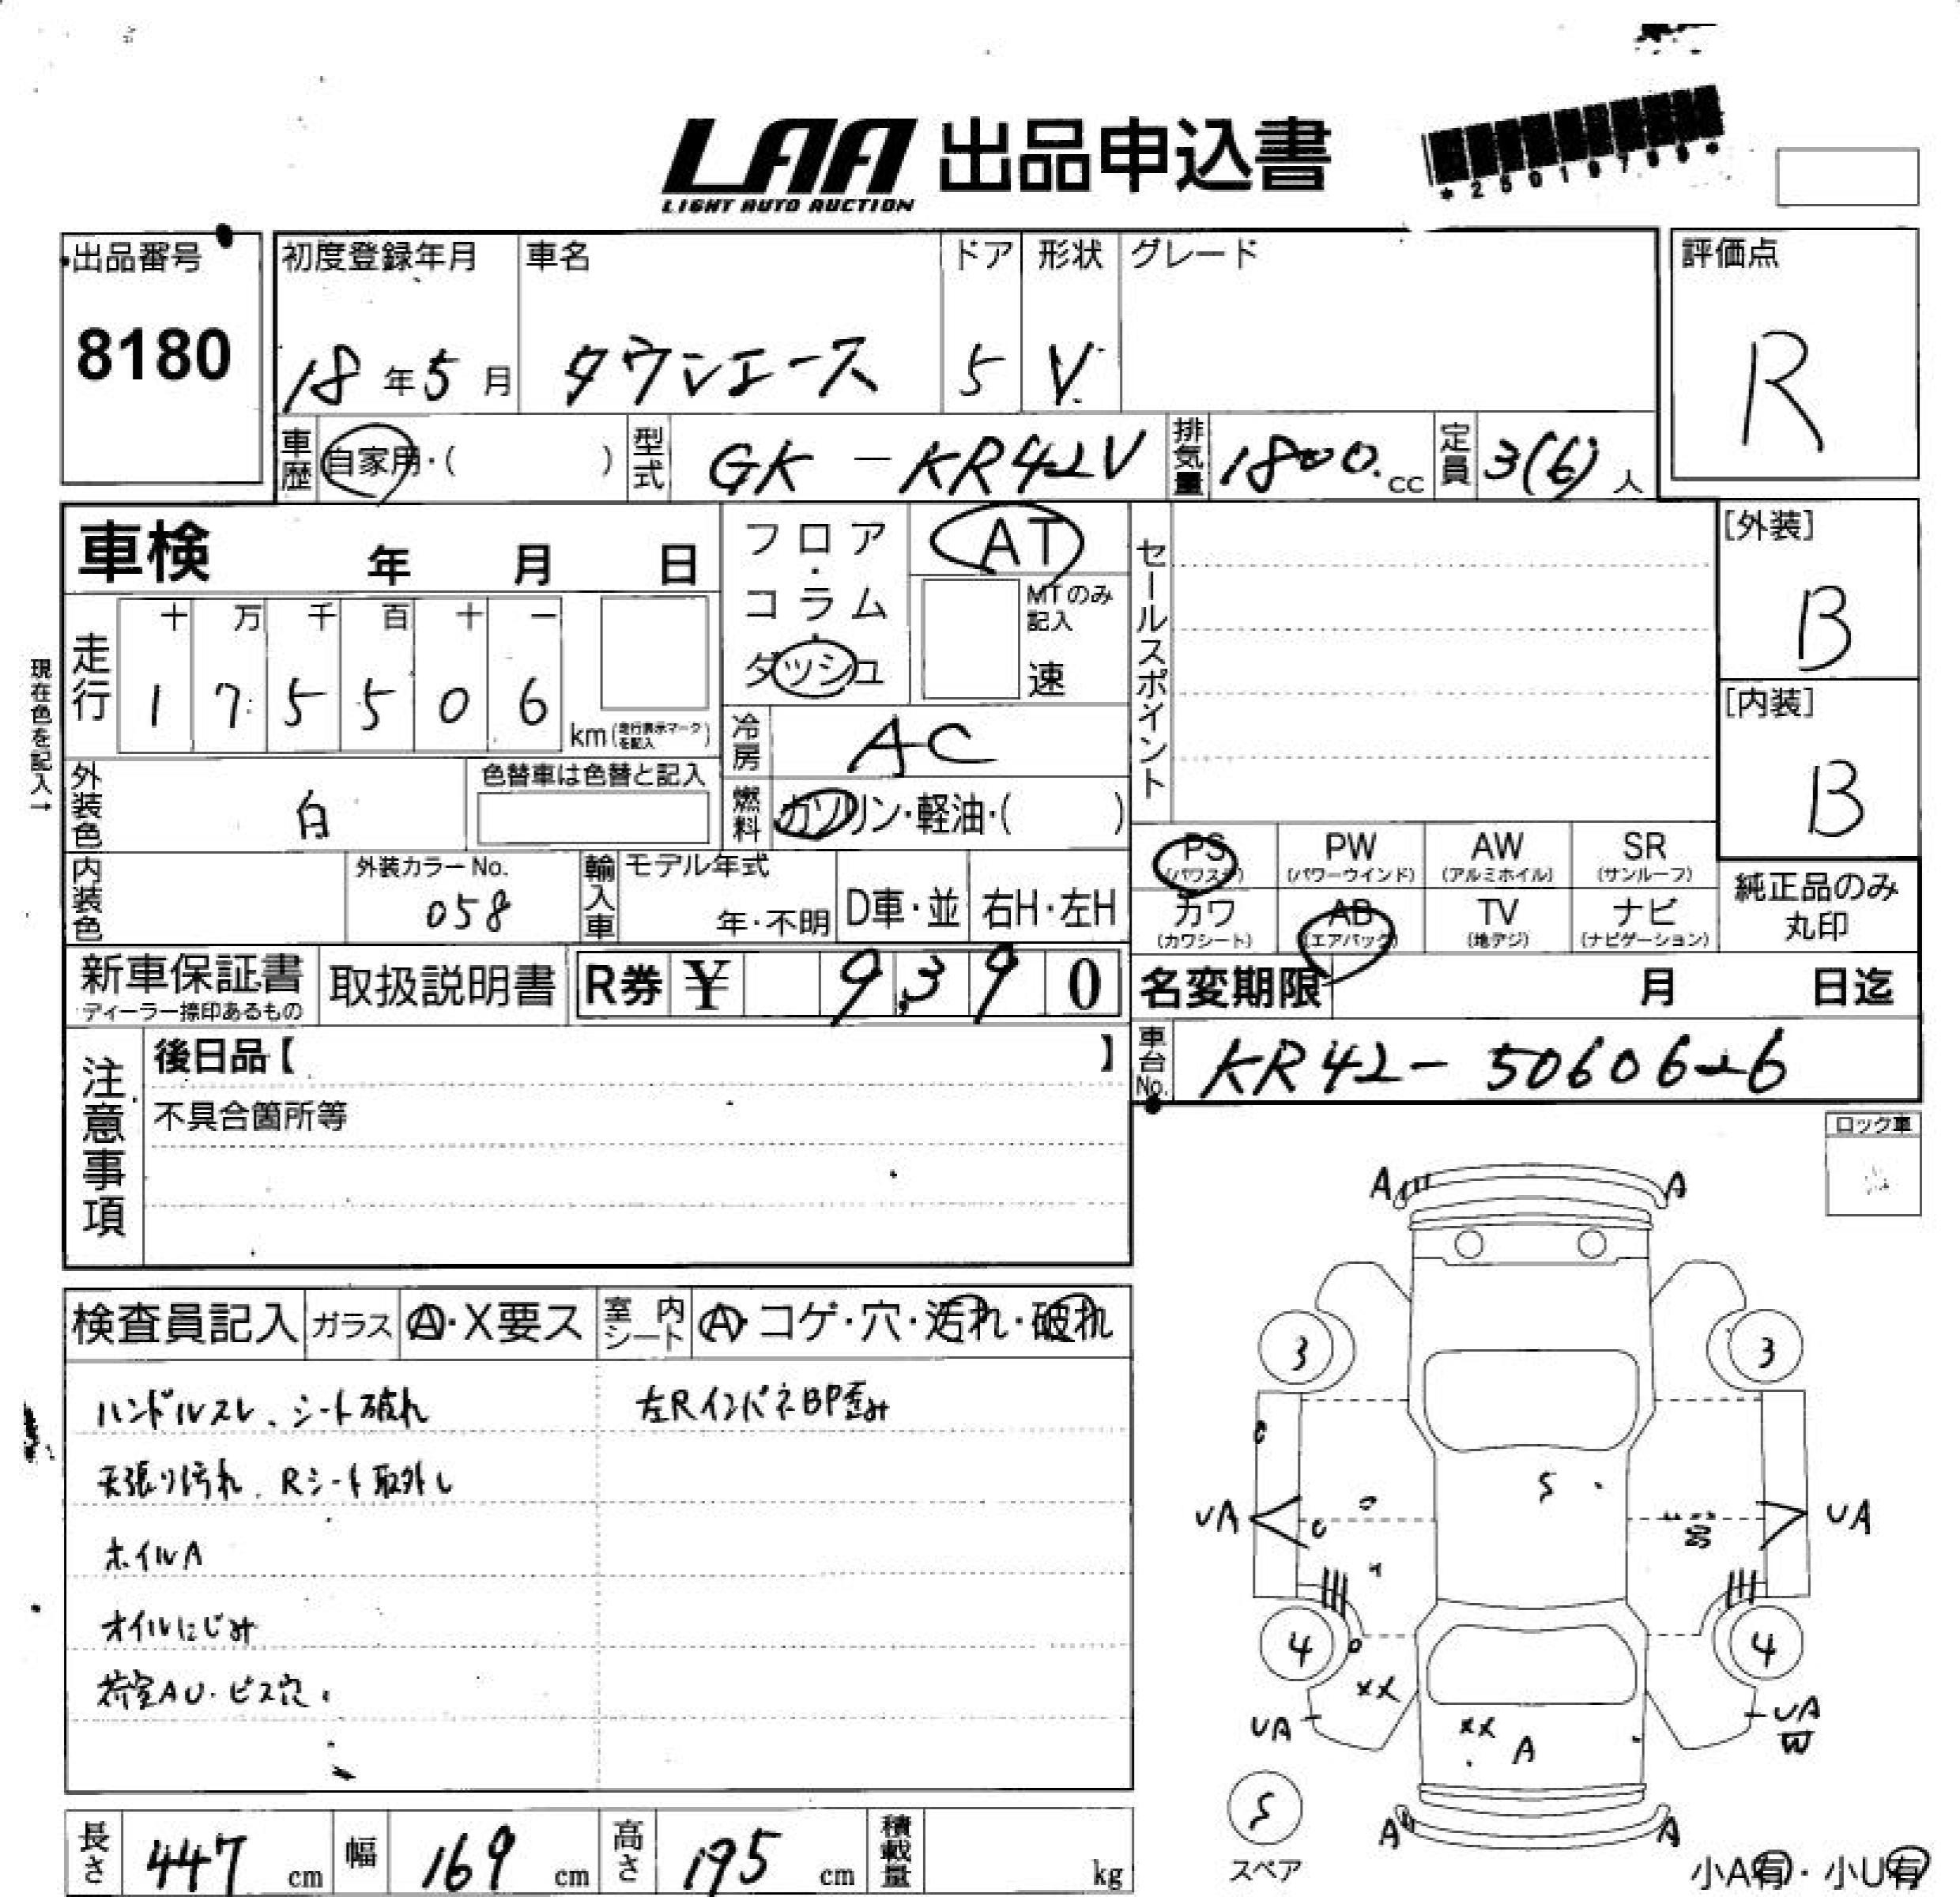 LAA 出品申込書
LIGHT AUTO AUCTION
出品番号
8180
初度登録年月
18年5月
車名
タウンエース
ドア
5
形状
V
グレード
評価点
R
車歴 自家用・( )
型式 GK-KR42V
排気量 1800.cc
定員 3(6)人
車検 年 月 日
フロア・コラム・ダッシュ
AT
MTのみ記入
速
セールスポイント
[外装]
B
[内装]
B
現在色を記入→
走行
十 万 千 百 十 一
1 7 5 5 0 6
km(走行表示マークを記入)
冷房 AC
燃料 ガソリン・軽油・( )
外装色 白
色替車は色替と記入
内装色
外装カラーNo.
058
輸入車
モデル年式
年・不明
D車・並
右H・左H
PS (パワステ)
PW (パワーウインド)
AW (アルミホイル)
SR (サンルーフ)
カワ (カワシート)
AB (エアバック)
TV (地デジ)
ナビ (ナビゲーション)
純正品のみ
丸印
新車保証書
ディーラー捺印あるもの
取扱説明書
R券 ¥ 9,390
名変期限 月 日迄
車台No. KR42-5060626
注意事項
後日品【 】
不具合箇所等
ロック車
検査員記入
ガラス A・X要ス
室内シート A・コゲ・穴・汚れ・破れ
ハンドルスレ、シート破れ
天張り汚れ、Rシート取外し
ホイルA
オイルにじみ
荷室AU・ビス穴
左RインパネBP歪み
A A
3 3
S
UA UA
4 4
XX
UA
UA
W
XX
A
5
スペア
A A
長さ 447 cm
幅 169 cm
高さ 195 cm
積載量 kg
小A有・小U有